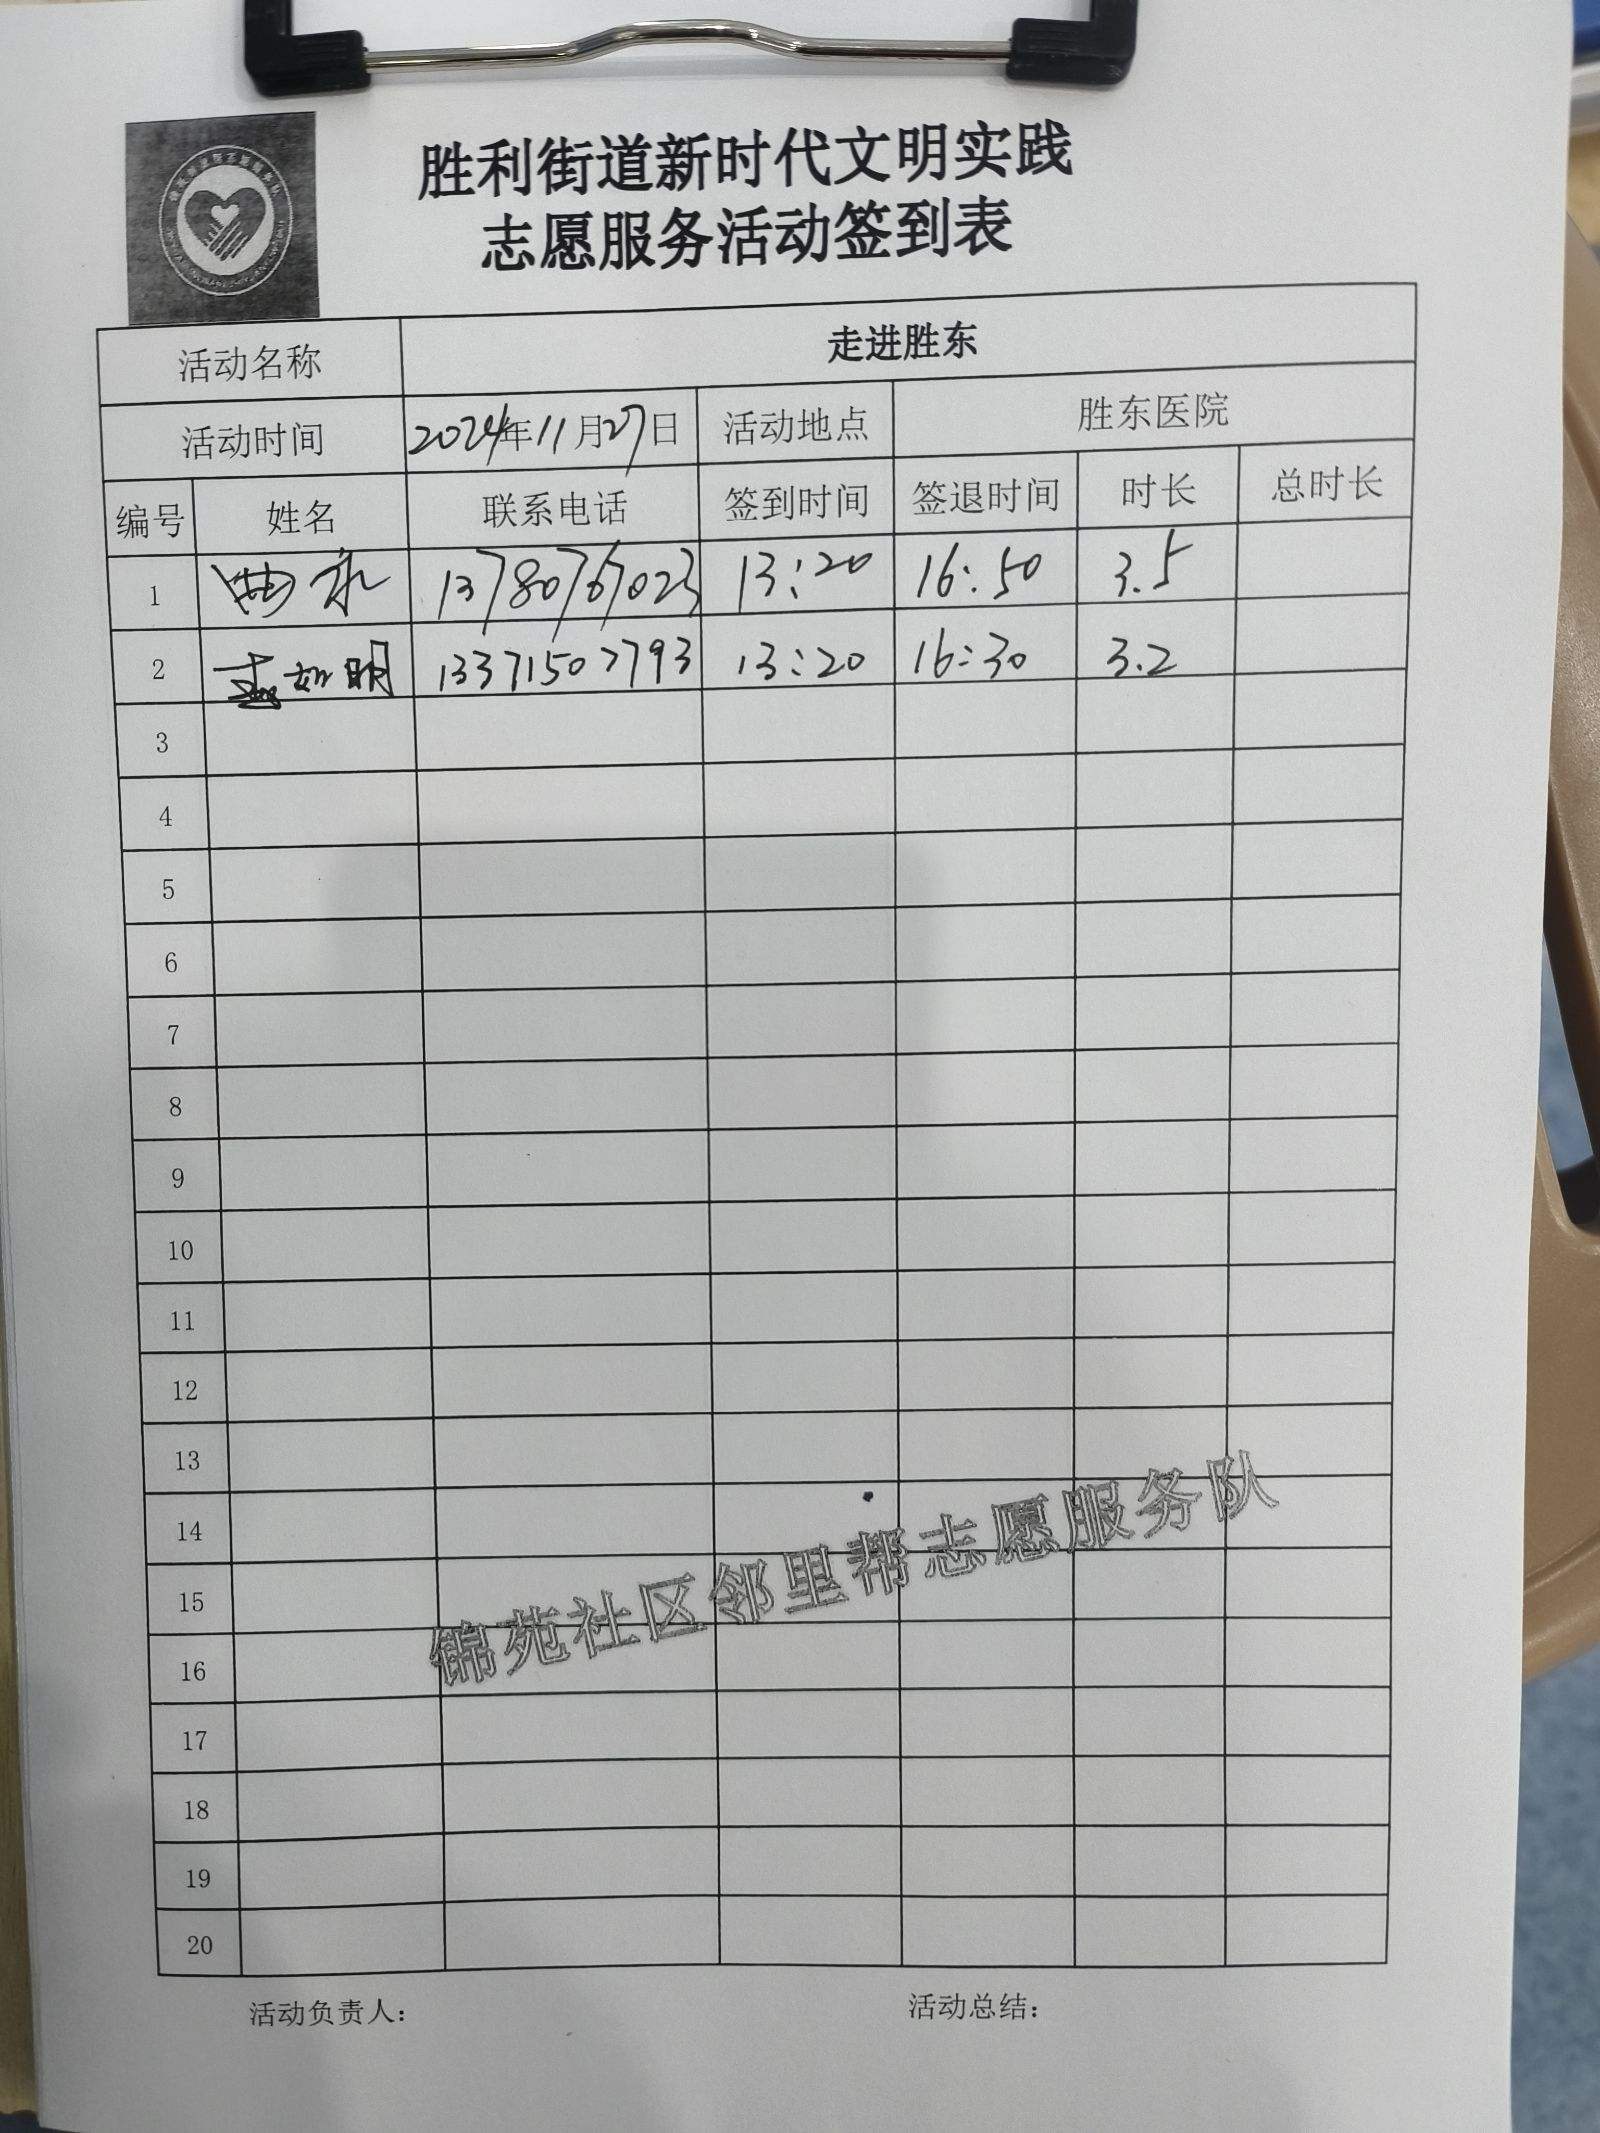 胜利街道新时代文明实践
志愿服务活动签到表
活动名称 走进胜东
活动时间 2024年11月27日 活动地点 胜东医院
编号 姓名 联系电话 签到时间 签退时间 时长 总时长
1 13780767023 13:20 16:50 3.5
2 如明 13371507793 13:20 16:30 3.2
3
4
5
6
7
8
9
10
11
12
13
14
15
16
17
18
19
20
锦苑社区邻里帮志愿服务队
活动负责人: 活动总结: